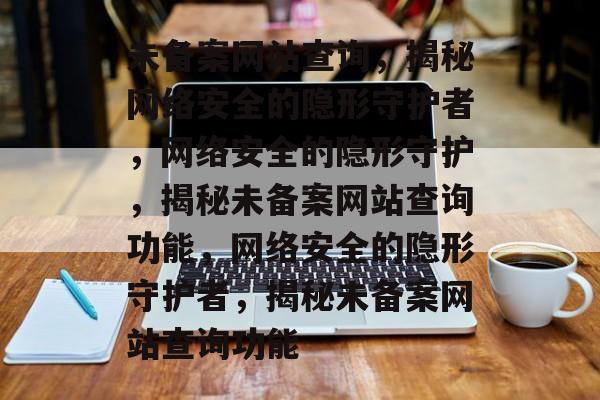 未备案网站查询，揭秘
网络安全的隐形守护者
，网络安全的隐形守护
，揭秘未备案网站查询
功能，网络安全的隐形
守护者，揭秘未备案网
站查询功能